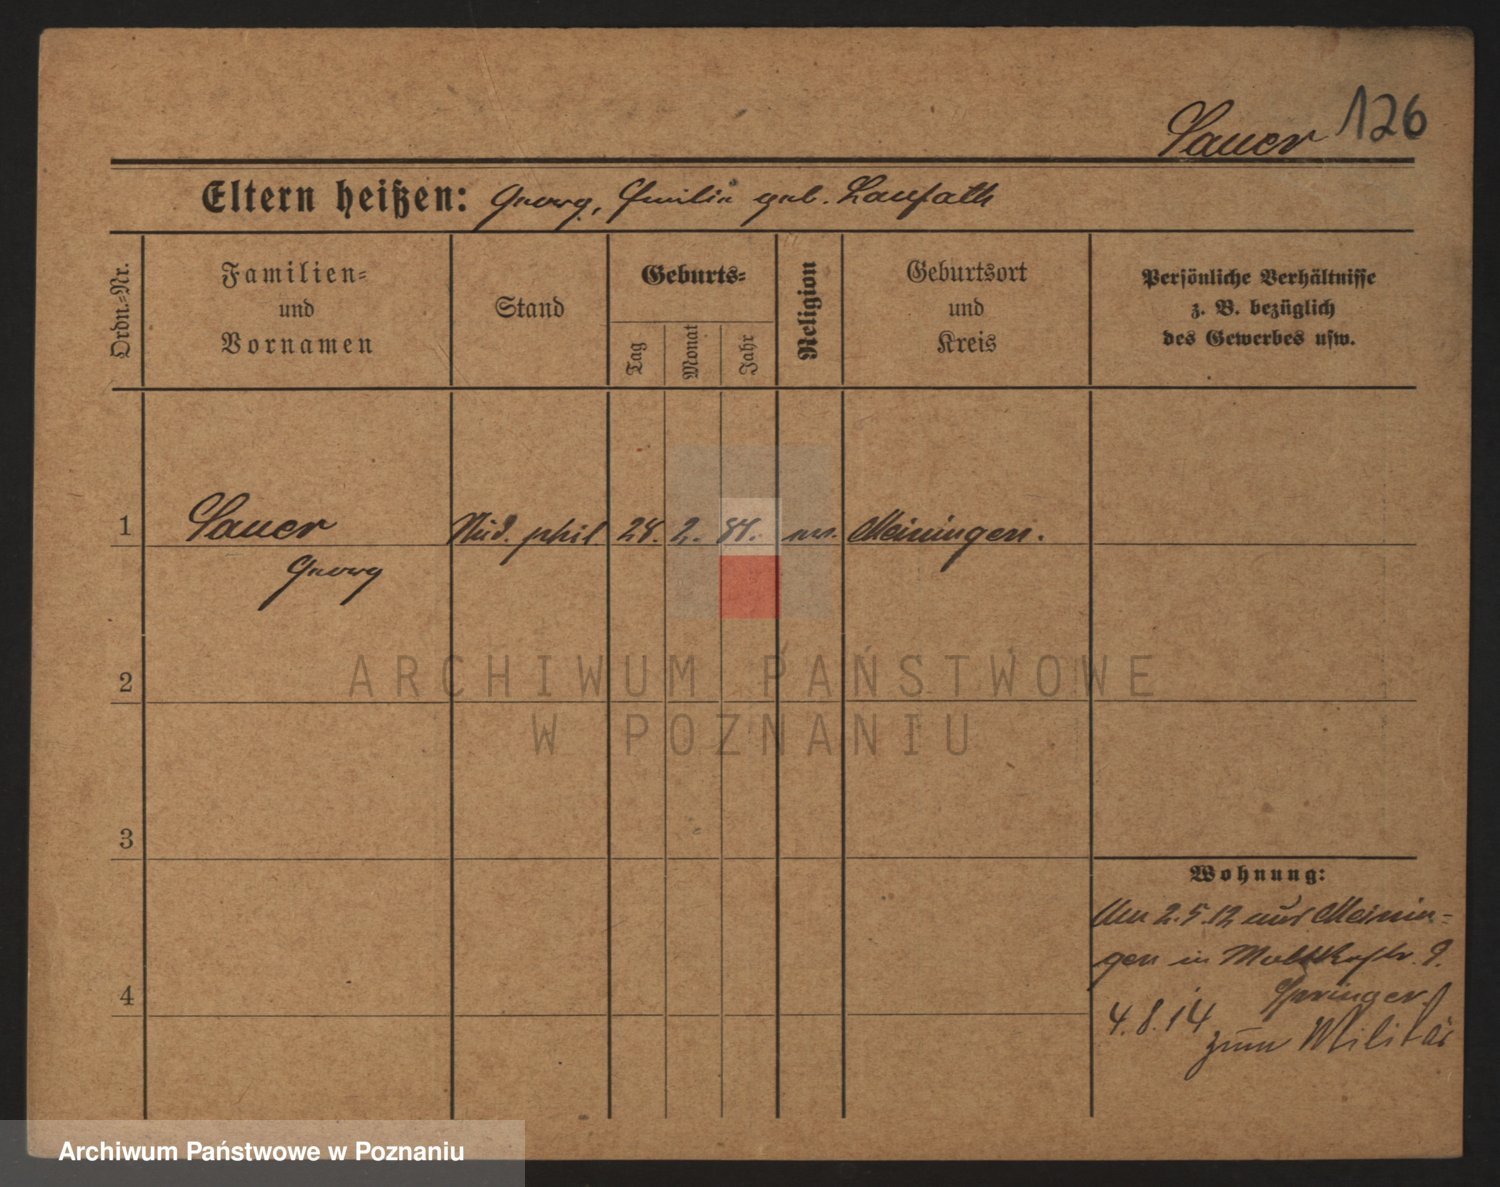 Sauer 126
Eltern heißen: Georg, Emilie geb.
Ordn.=Nr.
Familien=
und
Vornamen
Stand
Geburts=
Tag
Monat
Jahr
Religion
Geburtsort
und
Kreis
Persönliche Verhältnisse
z. B. bezüglich
des Gewerbes usw.
1 Sauer phil. 24. 2. 84. ev. Meiningen.
Georg
2
3
4
Wohnung:
Am 2.5.12 aus Meinin-
gen in Moltkestr. 9.
Springer.
4.8.14
zum Militär
ARCHIWUM PAŃSTWOWE
W POZNANIU
Archiwum Państwowe w Poznaniu